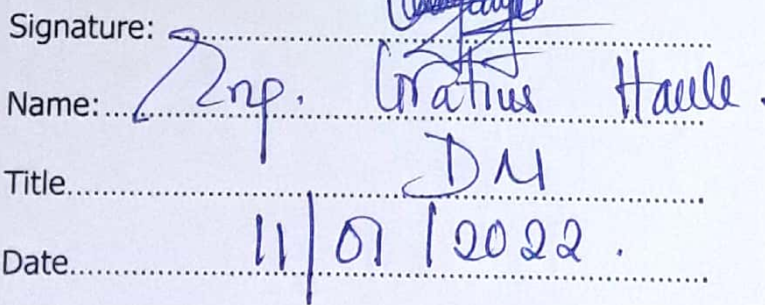 Signature:
Name: Eng. Gratius Haule.
Title DM
Date 11/01/2022.